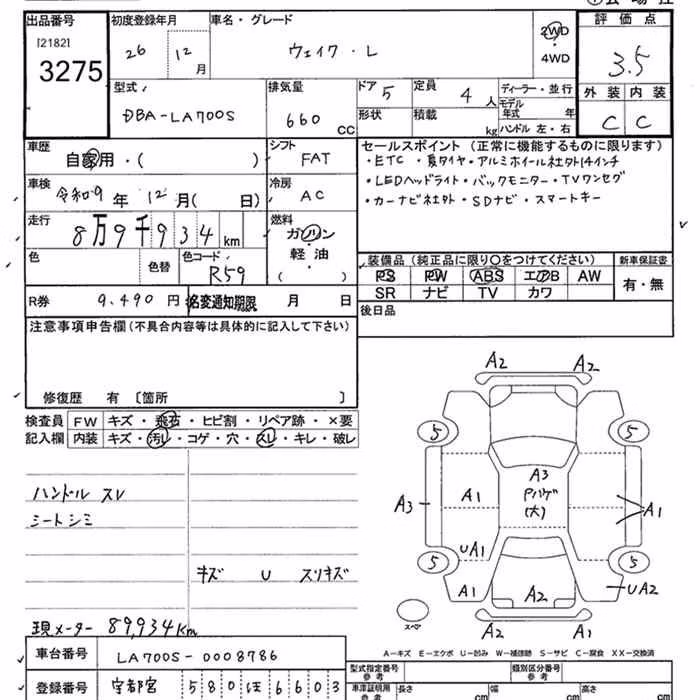 出品番号
[2182]
3275
初度登録年月
26 12 月
車名・グレード
ウェイク・L
2WD
・
4WD
評価点
3.5
外装 内装
C C
型式
DBA-LA700S
排気量
660 CC
ドア 5
形状
定員 4 人
積載 kg
ディーラー・並行
モデル
年式 年
ハンドル 左・右
車歴
自家用・( )
シフト
FAT
車検
令和9 年 12 月( 日)
冷房
AC
走行
8万9千934 km
燃料
ガソリン
・
軽油
( )
色
色替
色コード
R59
R券 9,490 円
名変通知期限 月 日
セールスポイント(正常に機能するものに限ります)
・ETC・夏タイヤ・アルミホイール社外14インチ
・LEDヘッドライト・バックモニター・TVワンセグ
・カーナビ社外・SDナビ・スマートキー
装備品(純正品に限り○をつけてください)
PS PW ABS エアB AW
SR ナビ TV カワ
新車保証書
有・無
後日品
注意事項申告欄(不具合内容等は具体的に記入して下さい)
修復歴 有 〔箇所 〕
検査員
記入欄
FW キズ・飛石・ヒビ割・リペア跡・×要
内装 キズ・汚レ・コゲ・穴・スレ・キレ・破レ
ハンドル スレ
シートシミ
キズ U スリキズ
現メーター 89,934Km
A2 A2
5 5
A3
A3 A1 Pハゲ A1
(大)
UA1
5 5
A1 A2 UA2
スペア
A2 A1
A−キズ E−エクボ U−凹み W−補修跡 S−サビ C−腐食 XX−交換済
車台番号 LA700S-0008786
登録番号 宇都宮 580 ほ 6603
型式指定番号
参考
類別区分番号
参考
車津証明用
参考
長さ cm
幅 cm
高さ cm